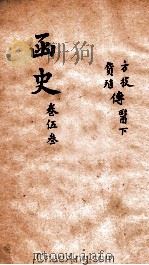 方技
傳醫下
貨殖
函史
卷伍叁